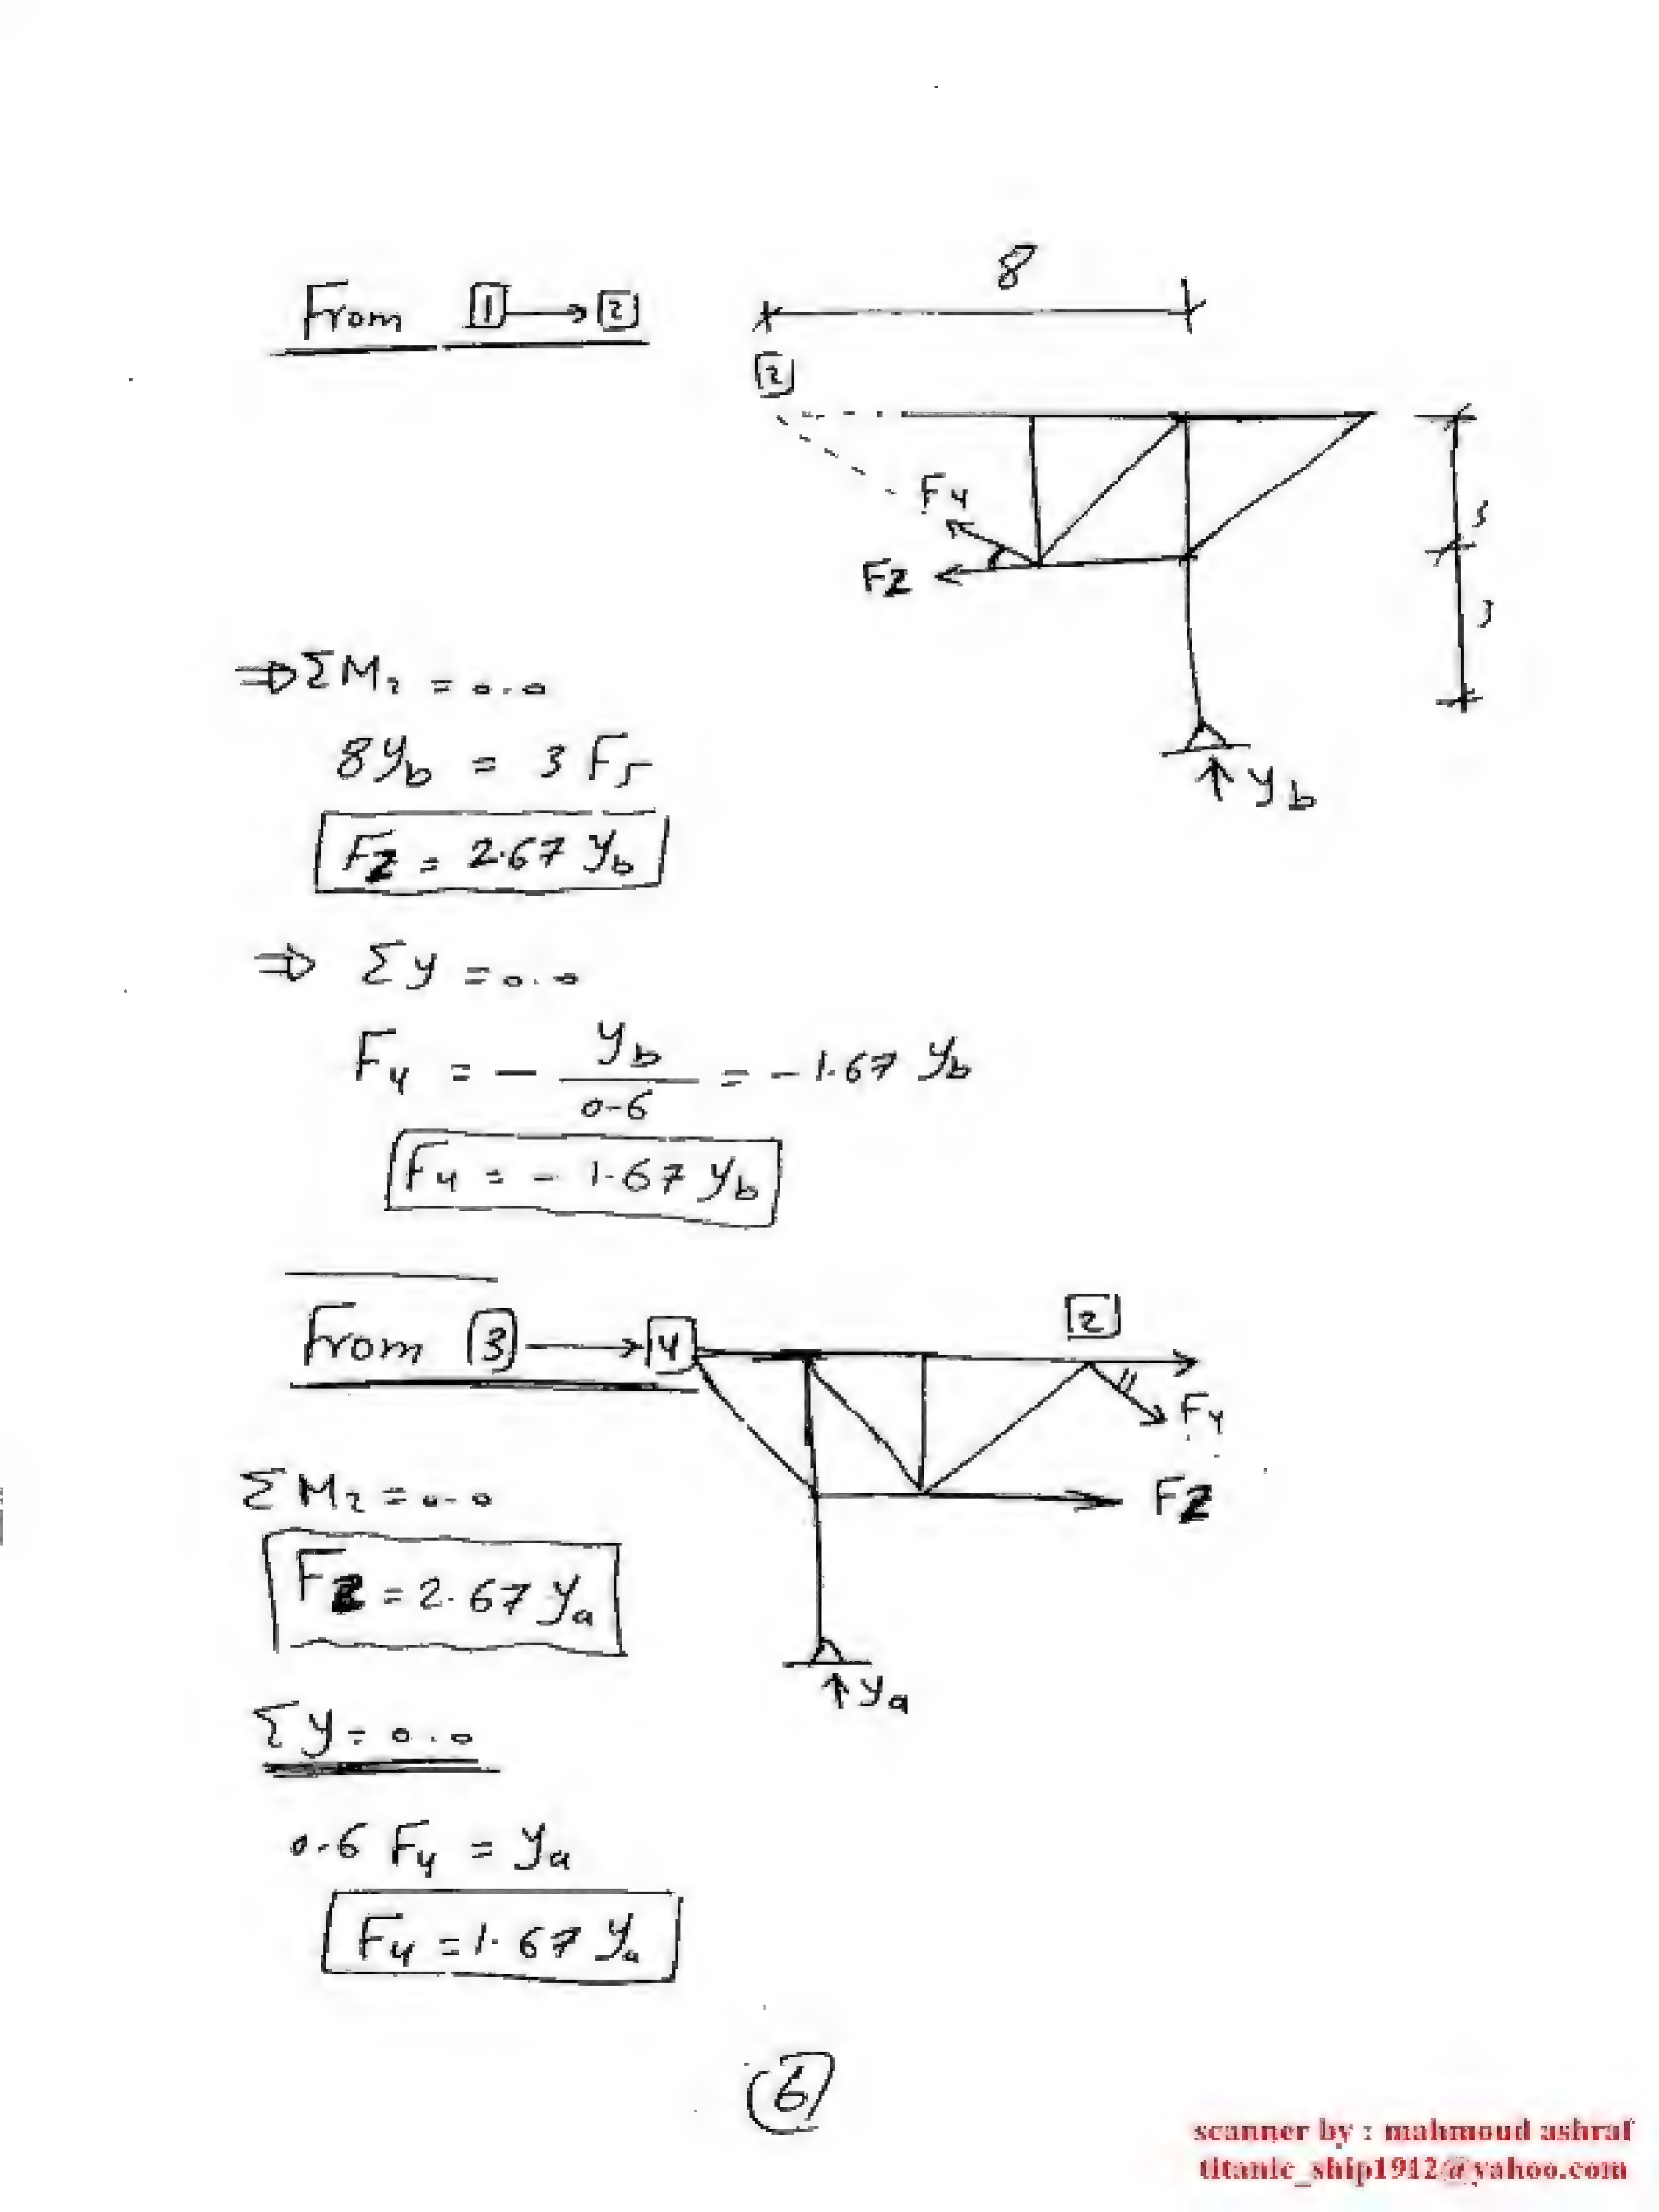 8
From 1 → 2
2
F4
F2
3
3
yb
⇒ ΣM2 = 0.0
8yb = 3 F5
F2 = 2.67 yb
⇒ Σy = 0.0
F4 = - yb / 0.6 = - 1.67 yb
F4 = - 1.67 yb
From 3 → 4
2
F4
F2
ΣM2 = 0.0
F2 = 2.67 ya
ya
Σy = 0.0
0.6 F4 = ya
F4 = 1.67 ya
6
scanner by : mahmoud ashraf
titanic_ship1912@yahoo.com